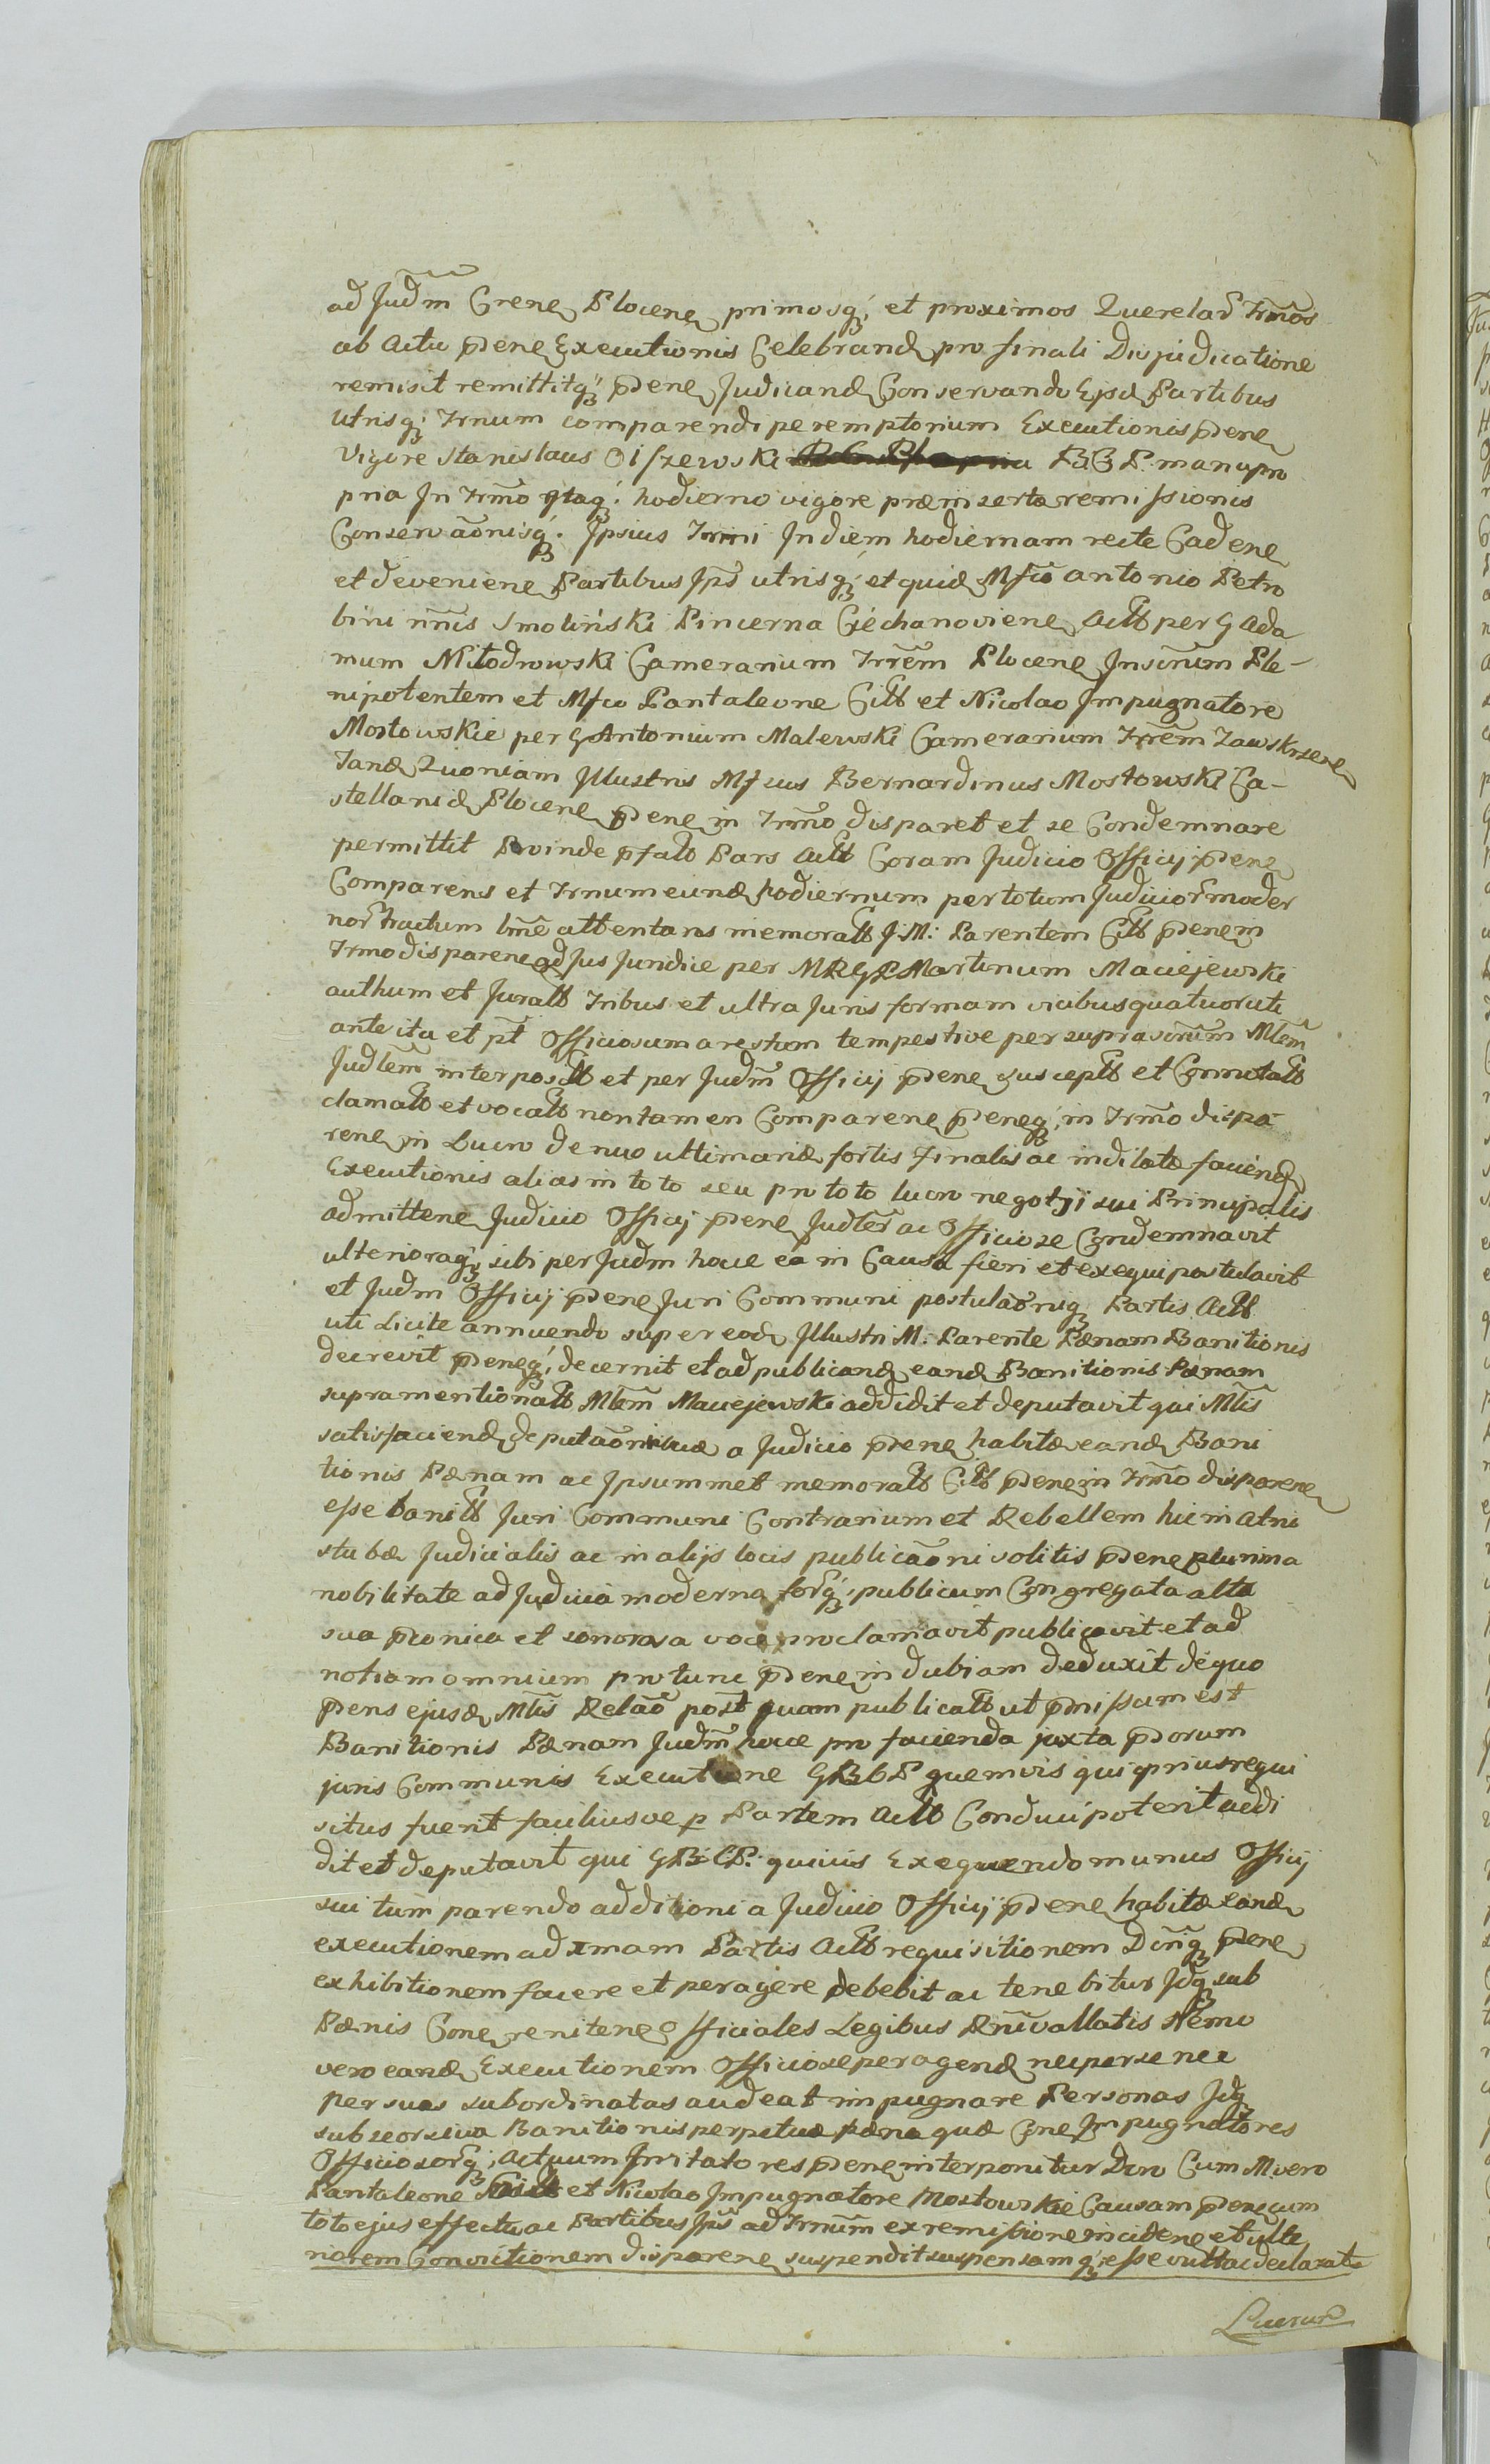 ad Judm Grene Plocene primosq; et proximos Querelar Trmos
ab actu pdene Executionis Celebrand pro finali Disjudicatione
remisit remittitq; pdene Judicand Conservando Epsd Partibus
utrisq; Trnum comparendi peremptorium Executionis pdene
Vigore Stanislaus Olszewski B: G P: manu pro
pria In Trmo itaq; hodierno vigore præinsertæ remissionis
Conservãonisq; Ipsius Trmi In diem hodiernam recte Cadene
et deveniene Partibus Ips utrisq; et quid Mfco Antonio Petro
bini nnis Smoliński Pincerna Ciéchanoviene Actt per G Ada
mum Młodrowski Camerarium Trrem Plocene Insrnum Ple-
nipotentem et Mfco Pantaleone Citt et Nicolao Impugnatore
Mostowskie per G Antonium Malewski Camerarium Trrem Zawskrzene
Tand Quoniam Illustris Mfcus Bernardinus Mostowski Ca-
stellanid Plocene pdene in Trmo disparet et se Condemnare
permittit Proinde pfatt Pars Actt Coram Judicio Officij pdene
Comparens et Trnum eund hodiernum per totum Judicior moder
nor tractum lme attentans memoratt J: M: Parentem Citt pdene in
Trmo disparene ad Jus Juridice per MRGR Martinum Maciejewski
authum et Juratt tribus et ultra Juris formam vicibus quatuor uti
ante ita et pt Officiosum arestum tempestive per suprascrnum Mtem
Judlem interpositt et per Judm Officij pdene susceptt et Connotatt
clamatt et vocatt non tamen Comparene pdeneq; in Trmo dispa
rene in Lucro denuo ultimarid fortis finalis ac indilate faciend
Executionis alias in toto seu pro toto lucro negotji sui Principalis
admittene Judicio Officij pdene Judter ac Officiose Condemnavit
ulterioraq; sibi per Judm hocce ea in Causa fieri et exequi postulavit
et Judm Officij pdene Juri Communi postulaoniq Partis Actt
uti Licite annuendo super eod Illustri M: Parente Pænam Banitionis
decrevit pdeneq; decernit et ad publicand eand Banitionis Pænam
supramentionatt Mtem Maciejewski addidit et deputavit qui Mtis
satisfaciend deputaoni suæ a Judicio pdene habitæ eand Bani
tionis Pænam ac Ipsummet memoratt Citt pdene in Trmo disparene
esse banitt Juri Communi Contrarium et Rebellem hic in atrio
stubæ Judicialis ac in alijs locis publicãoni solitis pdene plurima
nobilitate ad Judicia moderna forq; publicum Congregata alta
sua pconica et sonorosa voce proclamavit publicavit et ad
notiam omnium pro tunc pdene indubiam deduxit de quo
pdens ejusd Mtis Relaõ post quam publicatt ut pmissum est
Banitionis Pænam Judm hocce pro facienda juxta pdorum
juris Communis Executione GBCP quemvis qui prius requi
situs fuerit faciliusve p Partem Actt Conduci poterit addi
dit et deputavit qui GB: CP: quivis Exequendo munus Officij
sui tum parendo additioni a Judicio Officij pdene habitæ eand
executionem ad xmam Partis Actt requisitionem Dmq pdene
exhibitionem facere et peragere debebit ac tenebitur Idq sub
Pænis Cone renitene Officiales Legibus Rni vallatis Nemo
vero eand Executionem Officiose peragend nec per se nec
per suas subordinatas audeat impugnare Personas Idq
sub seorsiva Banitionis perpetuæ pæna quæ Cone Impugnatores
Officiosorq; Actuum Irritatores pdene interponitur Dno Cum M vero
Pantaleone et Nicolao Impugnatore Mostowskie Causam pdene cum
toto ejus effectu ac Partibus Ips ad Trnum ex remissione incidene et ulte
riorem Convictionem disparene suspendit suspensamq; esse vult ac declarat